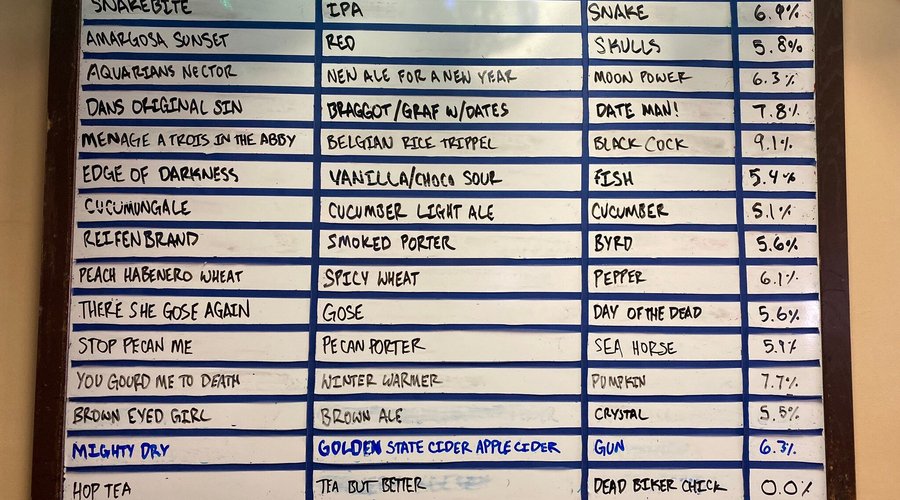 SNAKEBITE IPA SNAKE 6.9%
AMARGOSA SUNSET RED SKULLS 5.8%
AQUARIANS NECTOR NEN ALE FOR A NEW YEAR MOON POWER 6.3%
DANS ORIGINAL SIN BRAGGOT/GRAF W/DATES DATE MAN! 7.8%
MENAGE A TROIS IN THE ABBY BELGIAN RICE TRIPPEL BLACK COCK 9.1%
EDGE OF DARKNESS VANILLA/CHOCO SOUR FISH 5.4%
CUCUMUNGALE CUCUMBER LIGHT ALE CUCUMBER 5.1%
REIFENBRAND SMOKED PORTER BYRD 5.6%
PEACH HABENERO WHEAT SPICY WHEAT PEPPER 6.1%
THERE SHE GOSE AGAIN GOSE DAY OF THE DEAD 5.6%
STOP PECAN ME PECAN PORTER SEA HORSE 5.9%
YOU GOURD ME TO DEATH WINTER WARMER PUMPKIN 7.7%
BROWN EYED GIRL BROWN ALE CRYSTAL 5.5%
MIGHTY DRY GOLDEN STATE CIDER APPLE CIDER GUN 6.3%
HOP TEA TEA BUT BETTER DEAD BIKER CHICK 0.0%